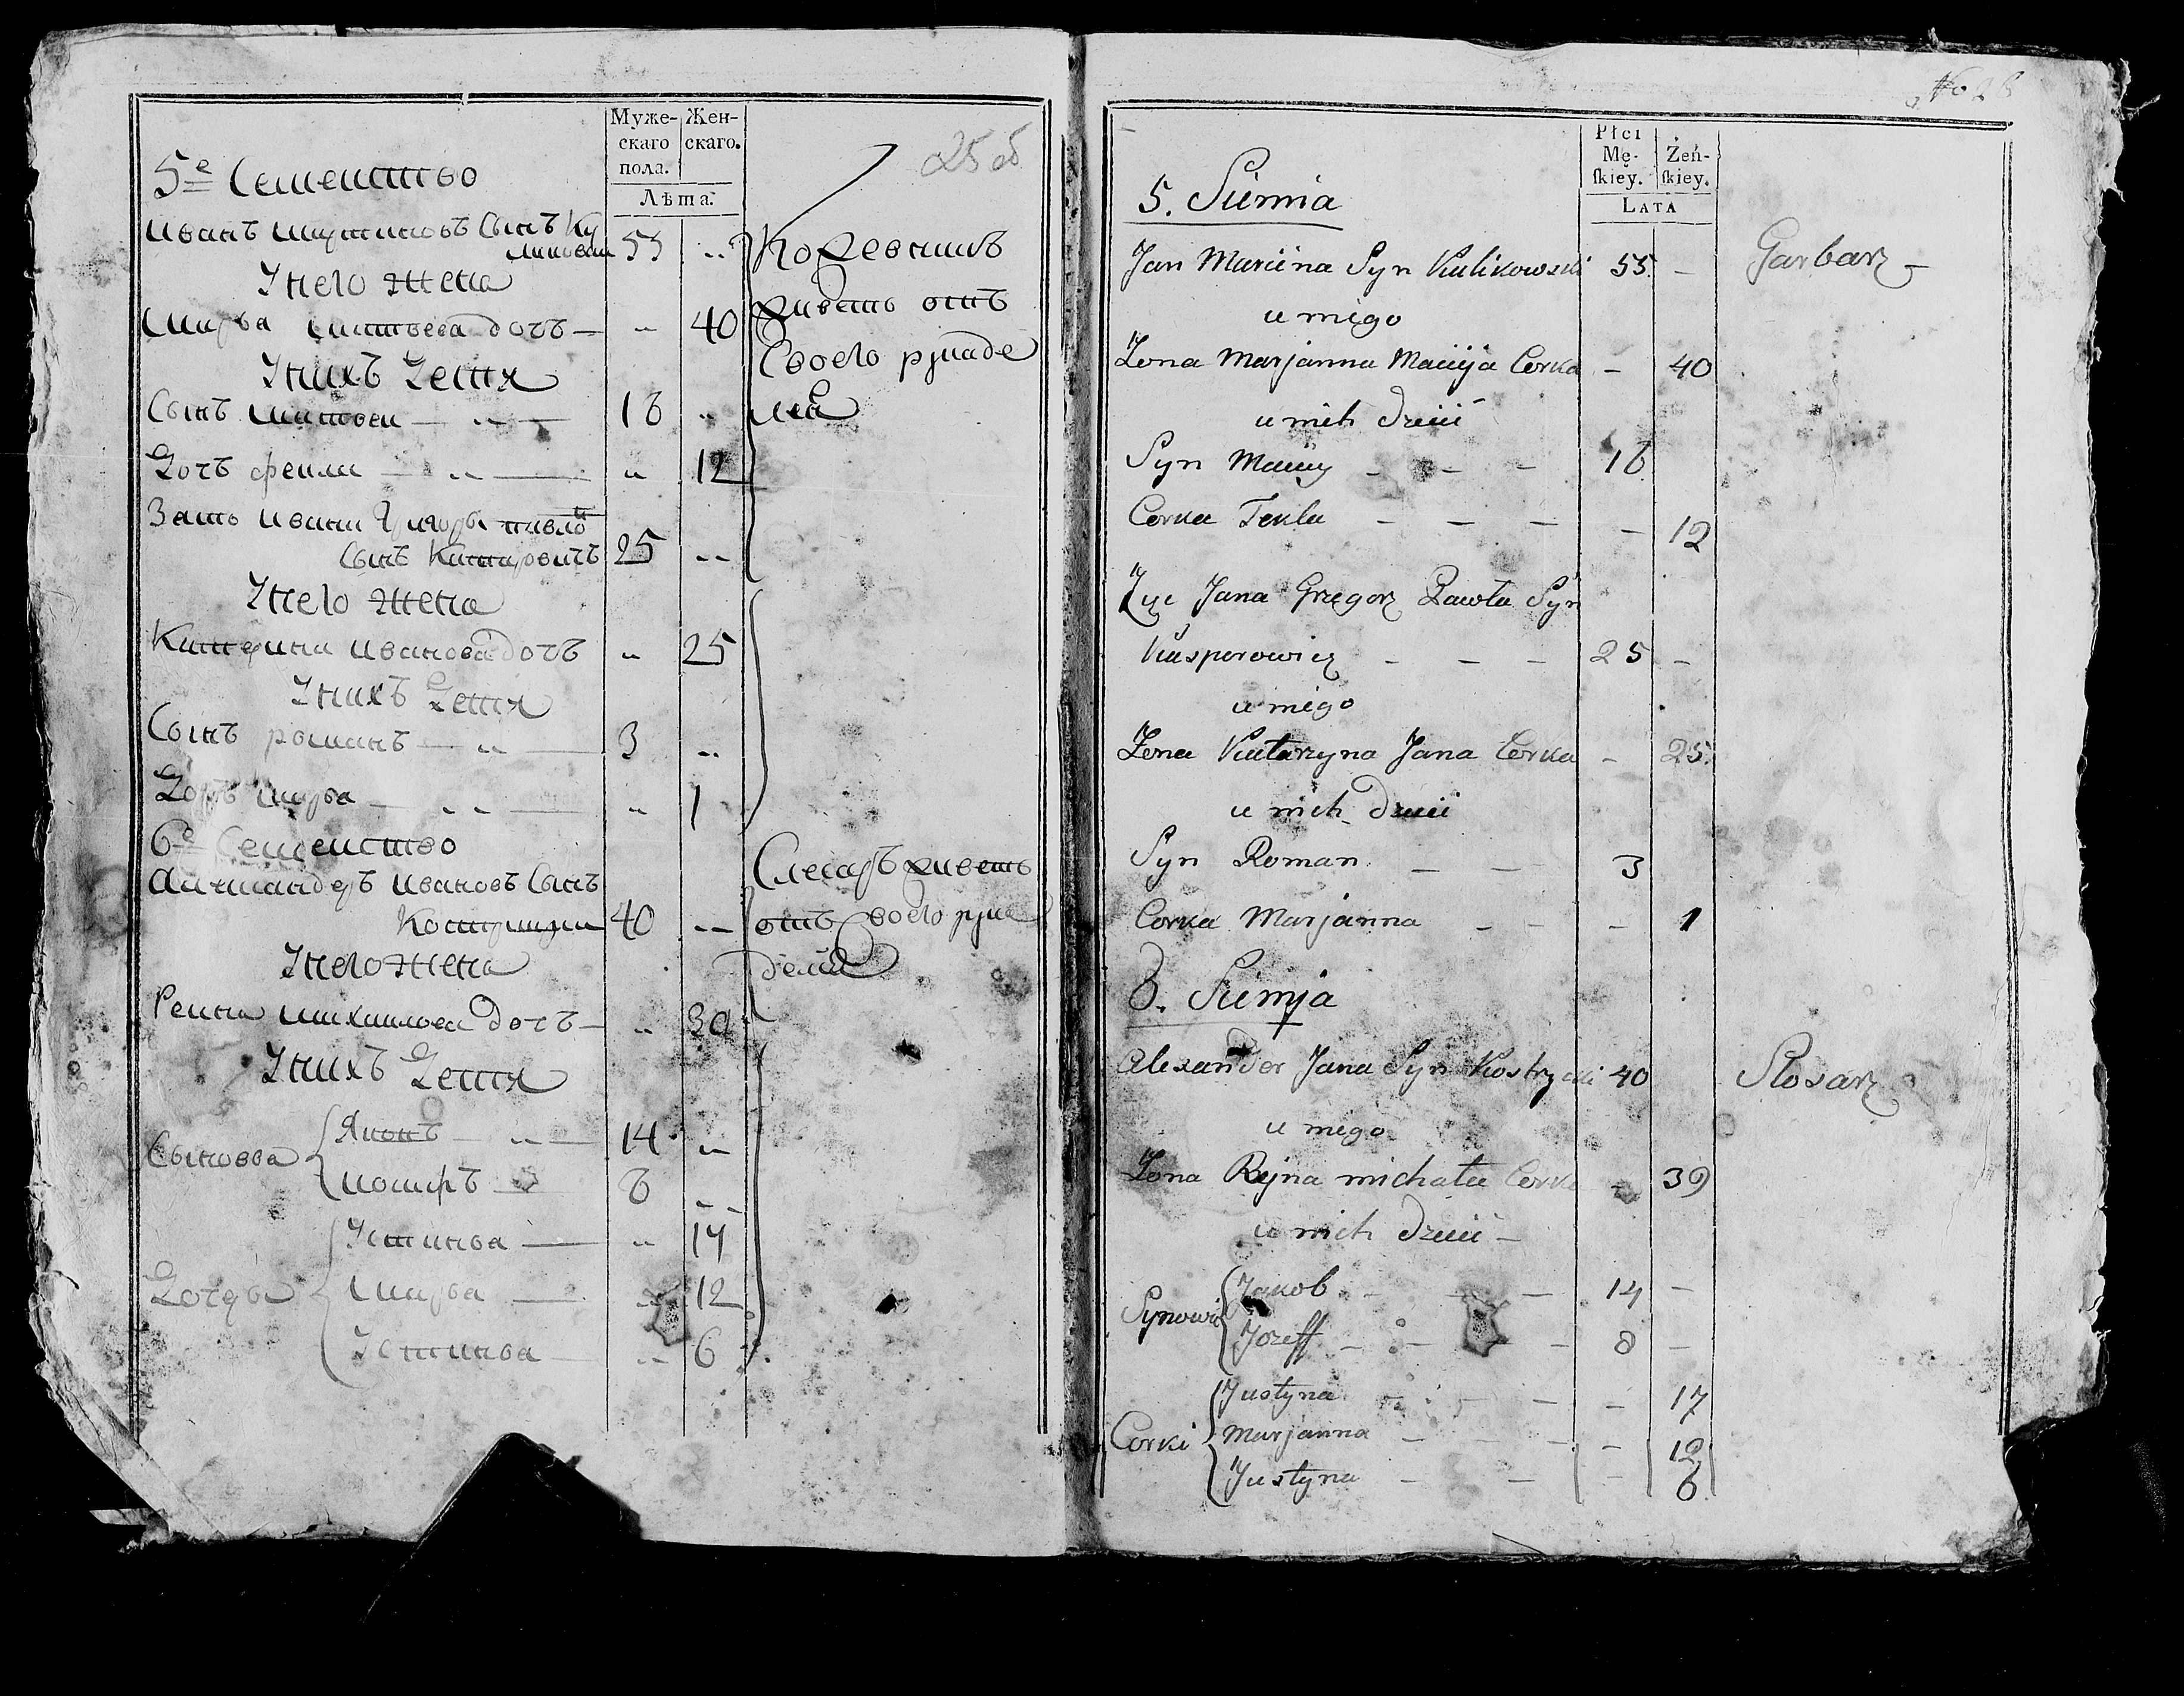 Муже-
скаго
пола.
Жен-
скаго.
Лѣта.
25 об
5е Семейство
Иванъ Мартиновъ Сынъ Ку
ликовски 55 --
Кожевникъ
У него жена
живетъ отъ
Марья Матвева дочь — " 40
своего рукаде
У нихъ дети
лия
Сынъ Матвеи — " — 18 "
Дочь Фекла — " — " 12
Зять Ивана Григоры Павло
Сынъ Каспаровичъ 25 --
У него жена
Катерина Иванова дочь " 25
У нихъ дети
Сынъ Романъ — " — 3 "
Дочь Марья — " — " 1
6е Семейство
Слесарь живетъ
Александеръ Ивановъ Сынъ
40 --
отъ своего рука
У него жена
делия
Михаилова дочь — " 39
У нихъ дети
Сыновья
Якопъ — " — 14 "
Иосифъ — 8 --
Дочеры
Устинья — " 17
Марья — " 12
Устинья — " 6
Płci
Mę-
skiey.
Żeń-
skiey.
LATA
5. Siemia
Jan Marcina Syn Kulikowski 55. —
Garbarz —
u niego
Zona Marjanna Macieja Corka — 40
u nich dzieci
Syn Maciey — — — 18
Corka Tekla — — — — 12
Zięc Jana Grzegorz Pawła Syn
Kasperowicz — — — 25 —
u niego
Zona Katarzyna Jana Corka — 25.
u nich dzieci
Syn Roman — — 3
Corka Marjanna — — — 1
6. Siemja
Alexander Jana Syn Kostrzycki 40
Slosarz
u niego
Zona Rejna Michała Corka — 39
u nich dzieci —
Synowie
Jakob — — — 14 —
Jozeff — — — 8 —
Corki
Justyna — — — — 17
Marjanna — — — — 12
Justyna — — — 6